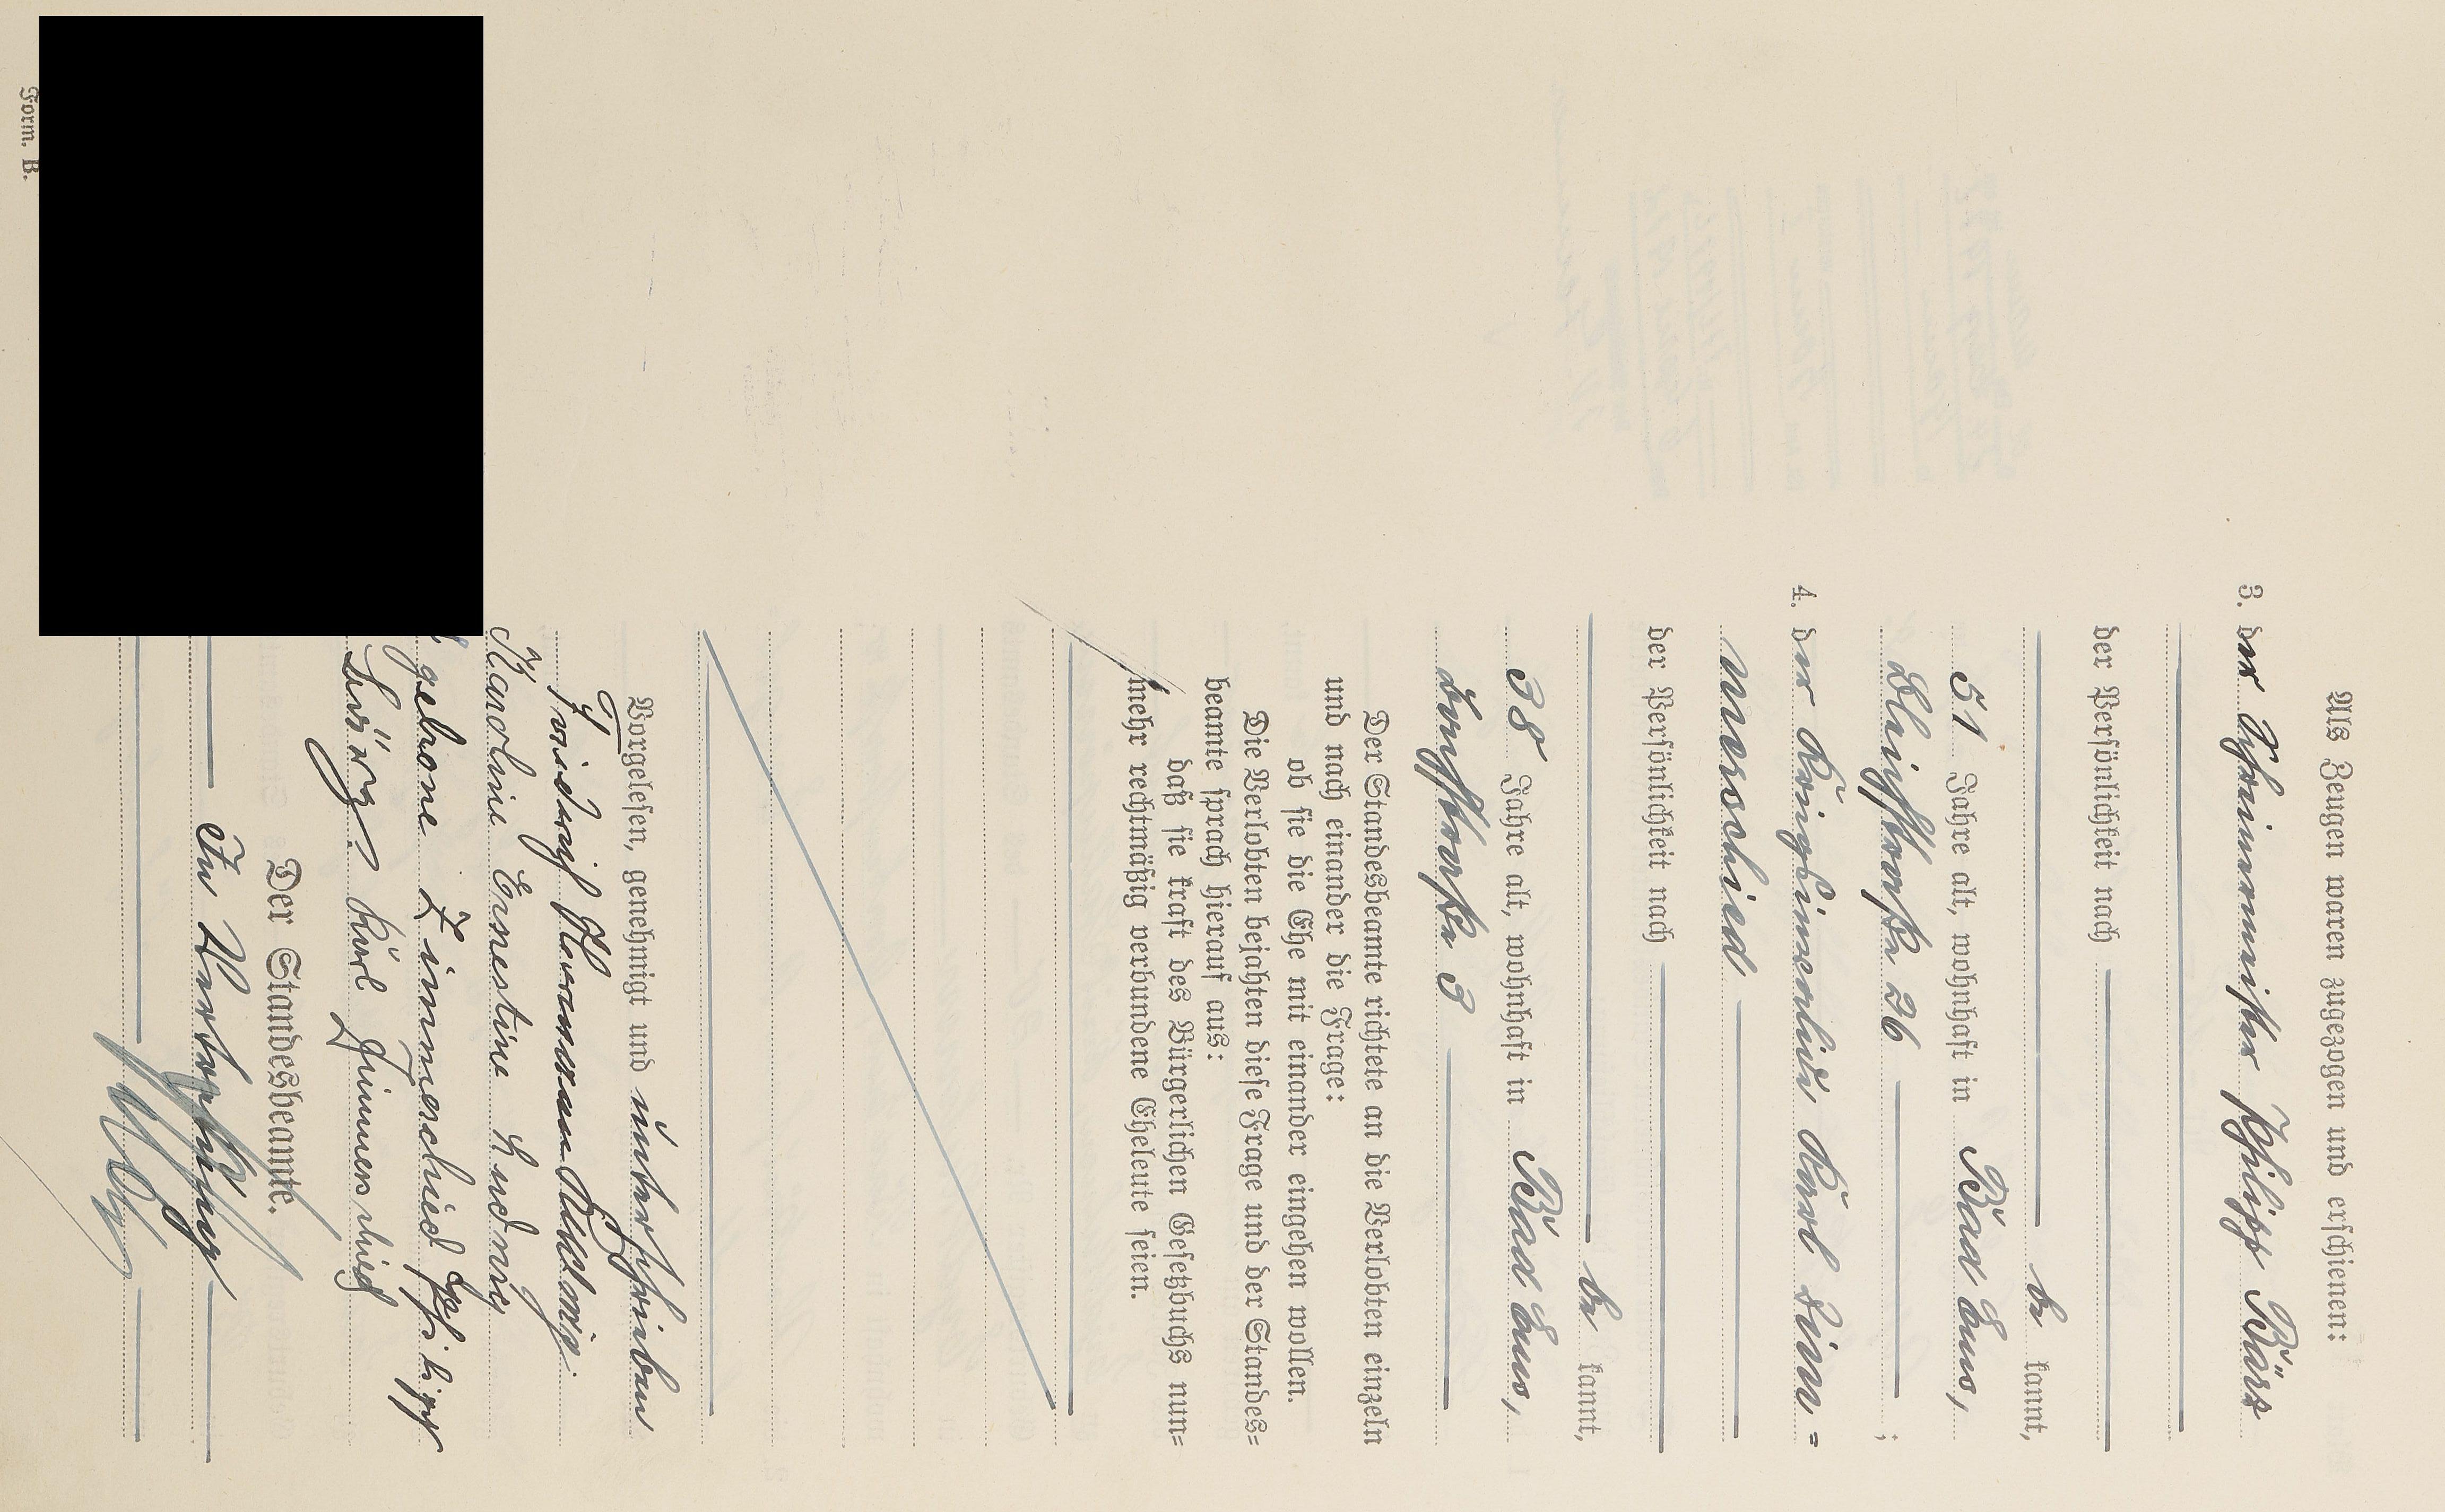 Als Zeugen waren zugezogen und erschienen:
3. der Schreinermeister Philipp Bär
der Persönlichkeit nach
be kannt,
51 Jahre alt, wohnhaft in Bad Ems,
Bleichstraße 26 ;
4. der Bauschreiner Karl Zim=
merschied
der Persönlichkeit nach
be kannt,
38 Jahre alt, wohnhaft in Bad Ems,
straße 3
Der Standesbeamte richtete an die Verlobten einzeln
und nach einander die Frage:
ob sie die Ehe mit einander eingehen wollen.
Die Verlobten bejahten diese Frage und der Standes=
beamte sprach hierauf aus:
daß sie kraft des Bürgerlichen Gesetzbuchs nun=
mehr rechtmäßig verbundene Eheleute seien.
Vorgelesen, genehmigt und unterschrieben
Friedrich Hermann Ludwig.
Karoline Ernestine Ludwig
geborne Zimmerschied Philipp
Bär Karl Zimmerschied
Der Standesbeamte.
In Vertretung
Form. B.